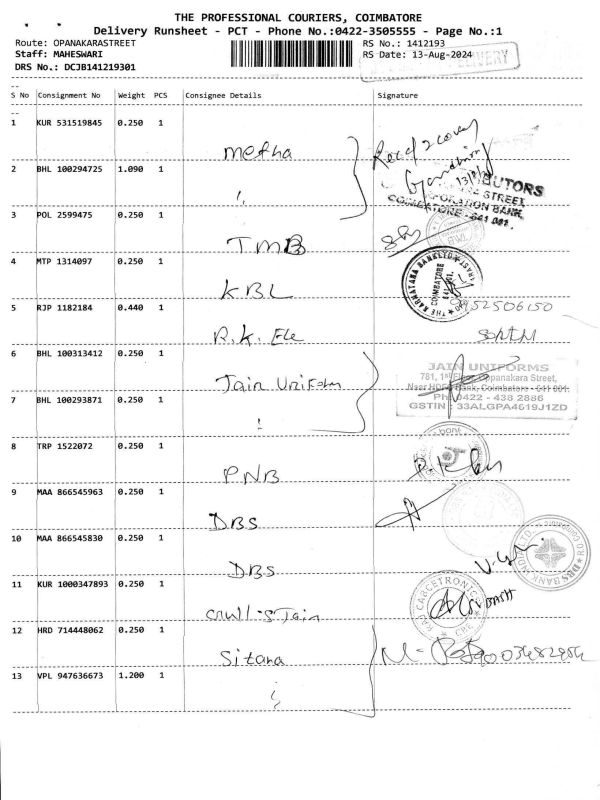 THE PROFESSIONAL COURIERS, COIMBATORE
Delivery Runsheet - PCT - Phone No.:0422-3505555 - Page No.:1
Route: OPANAKARASTREET RS No.: 1412193
Staff: MAHESWARI RS Date: 13-Aug-2024
DRS No.: DCJB141219301
DELIVERY
--
S No Consignment No Weight PCS Consignee Details Signature
--
1 KUR 531519845 0.250 1
Metha Recd 2 covers
2 BHL 100294725 1.090 1
" 13/8/
BUTORS
STREET,
CORPORATION BANK,
COIMBATORE - 641 001.
3 POL 2599475 0.250 1
TMB
4 MTP 1314097 0.250 1
KBL
THE KARNATAKA BANK LTD
COIMBATORE
641 001.
5 RJP 1182184 0.440 1
R.K. Ele
6 BHL 100313412 0.250 1
Jain Uniform
JAIN UNIFORMS
781, 1st Floor, Oppanakara Street,
Near HDFC Bank, Coimbatore - 641 001.
Ph: 0422 - 438 2886
GSTIN : 33ALGPA4619J1ZD
7 BHL 100293871 0.250 1
"
8 TRP 1522072 0.250 1
PNB
9 MAA 866545963 0.250 1
DBS
10 MAA 866545830 0.250 1
DBS
DBS BANK INDIA LTD
11 KUR 1000347893 0.250 1
12 HRD 714448062 0.250 1
Sitara
13 VPL 947636673 1.200 1
"